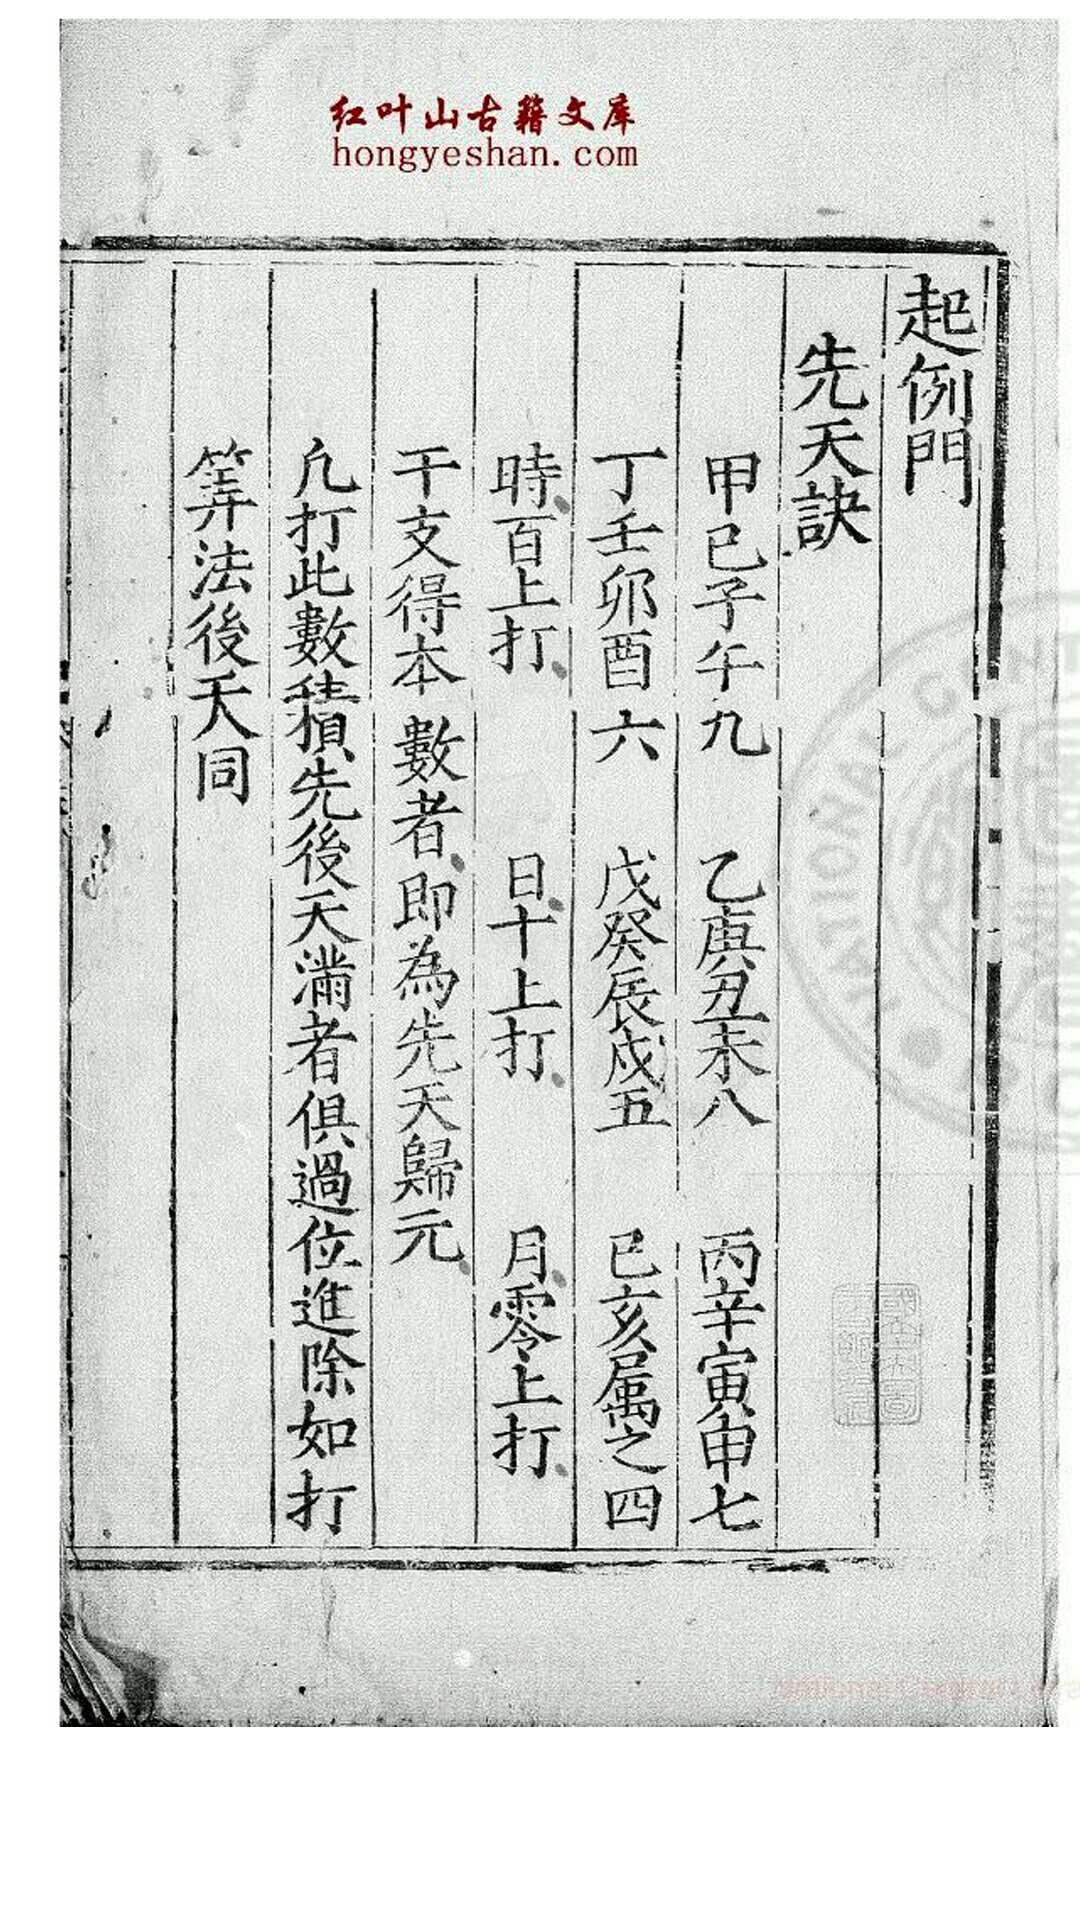 红叶山古籍文库
hongyeshan.com
起例門
先天訣
甲己子午九 乙庚丑未八 丙辛寅申七
丁壬卯酉六 戊癸辰戌五 巳亥属之四
時百上打 日十上打 月零上打
干支得本數者即為先天歸元
凡打此數積先後天滿者俱過位進除如打
筭法後天同